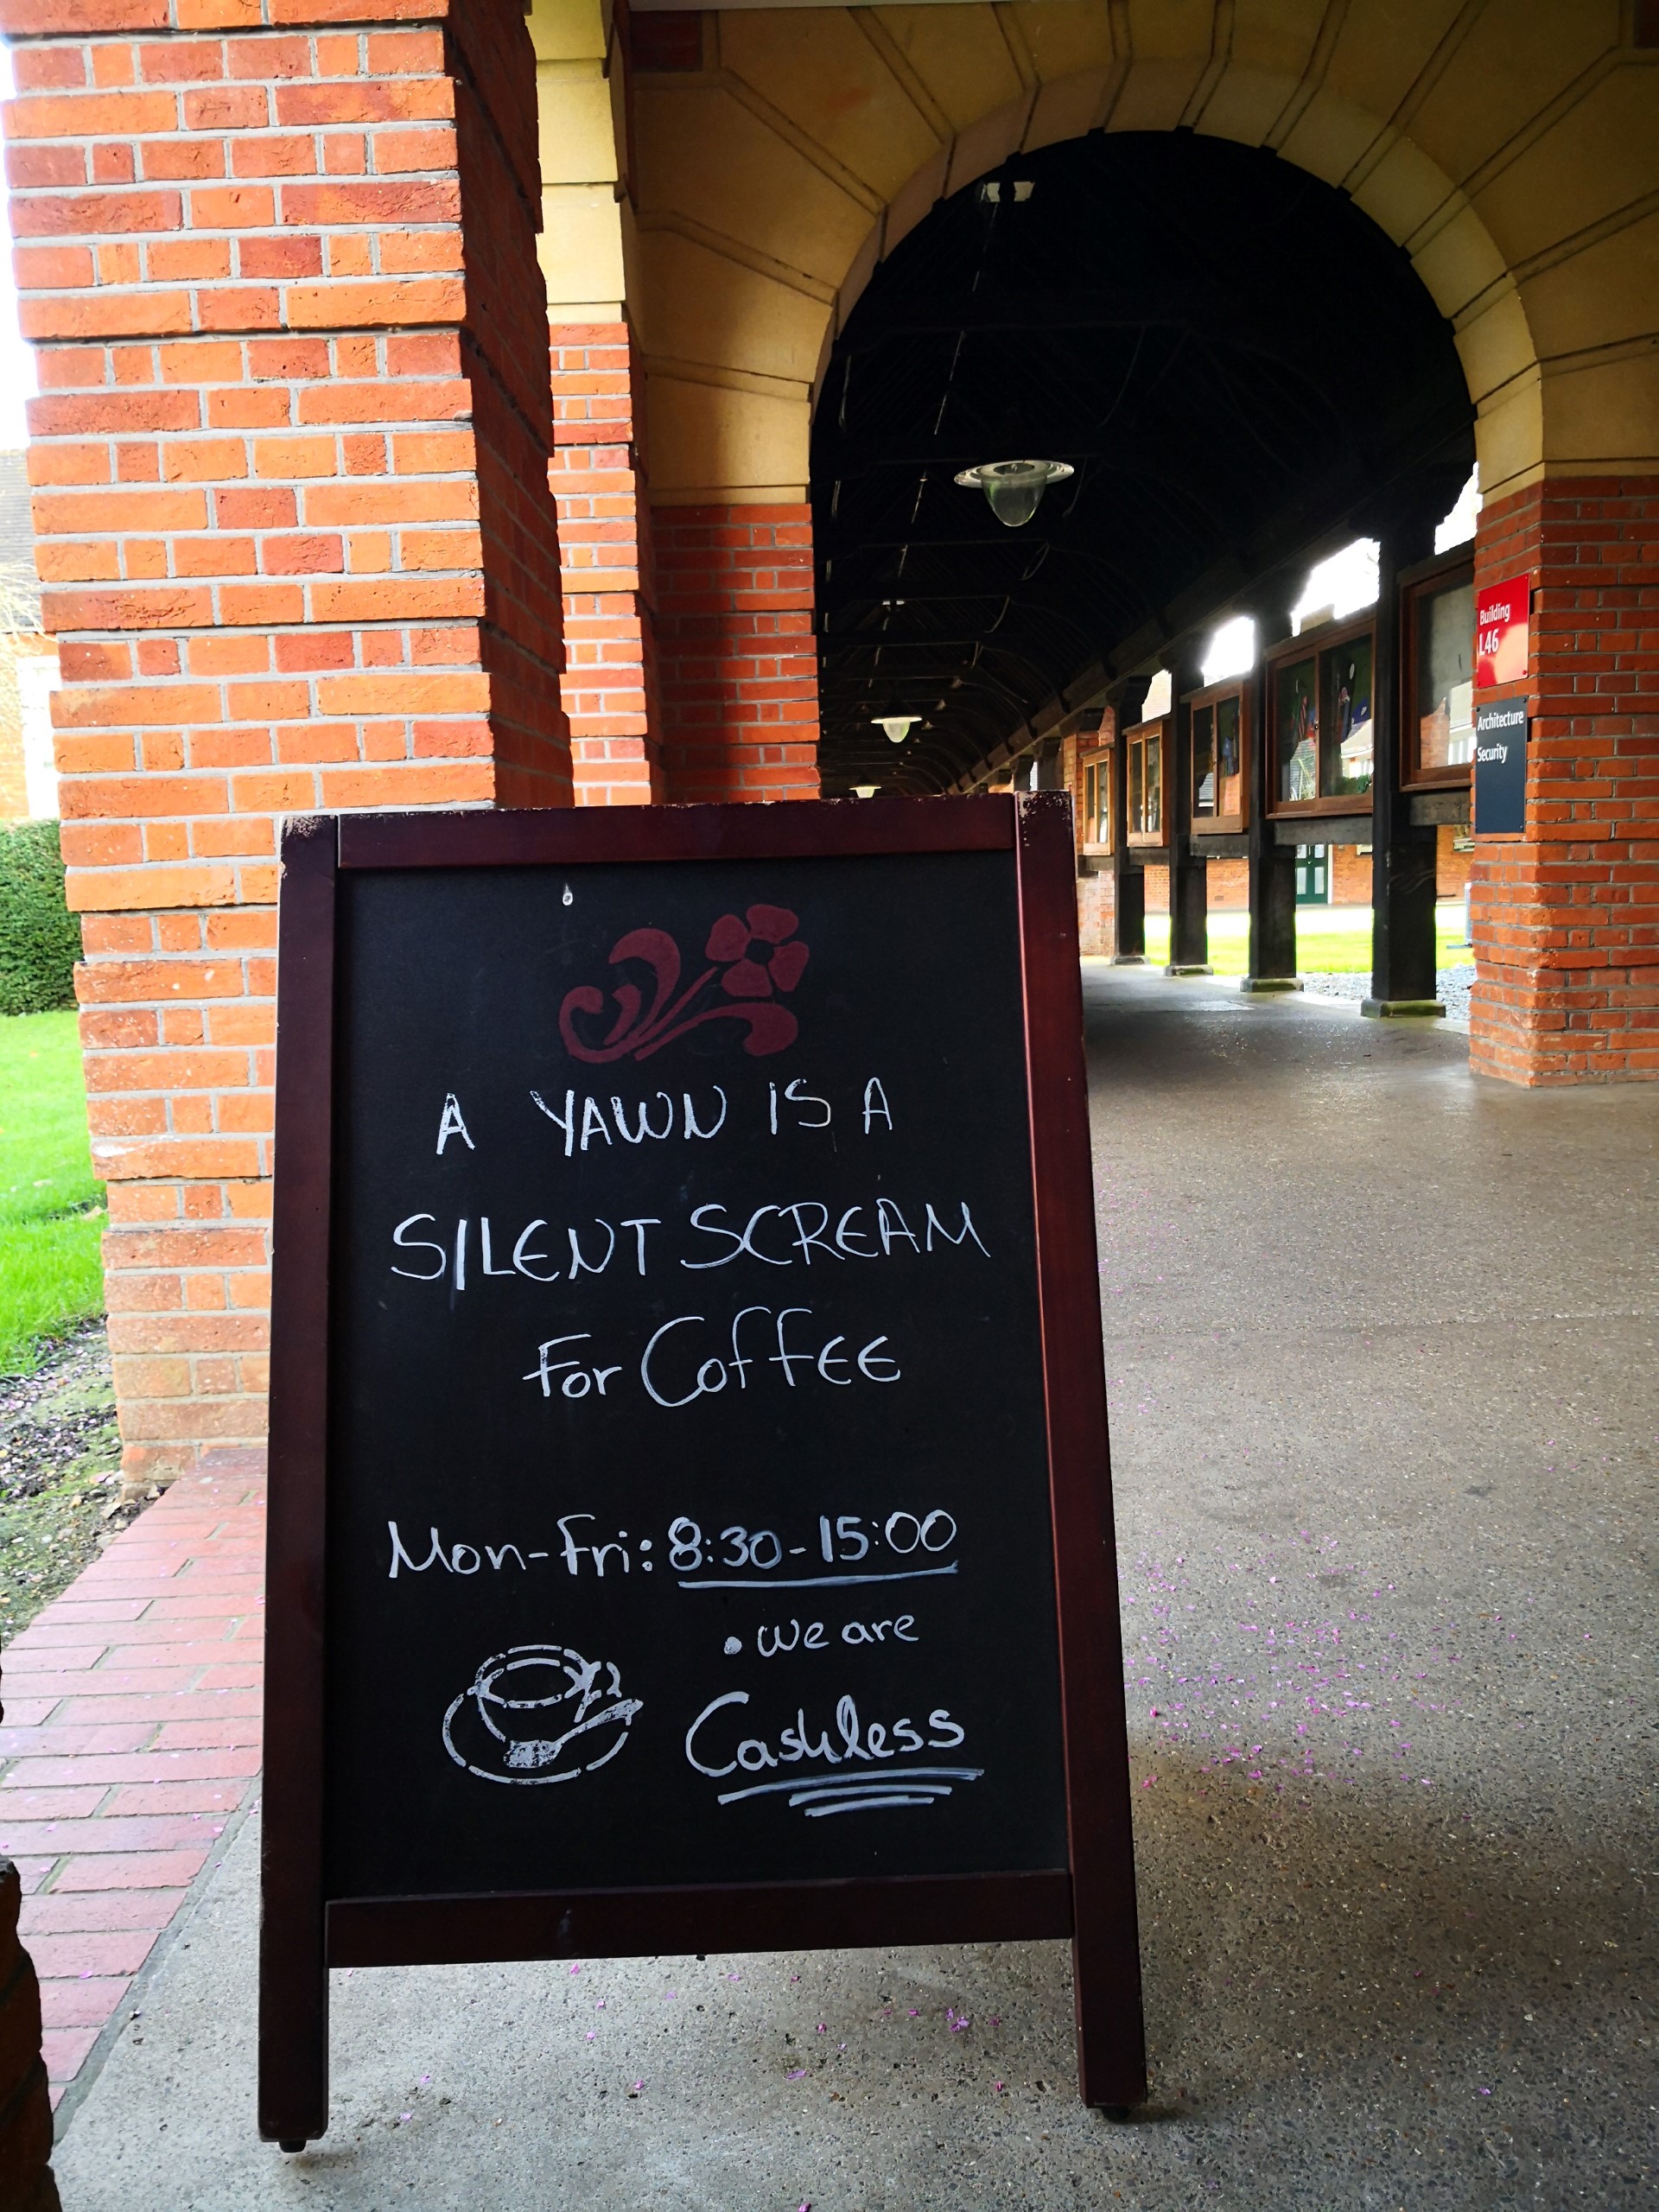 Building
L46
Architecture
Security
A YAWN IS A
SILENT SCREAM
For CoffEE
Mon-Fri: 8:30-15:00
• we are
Cashless